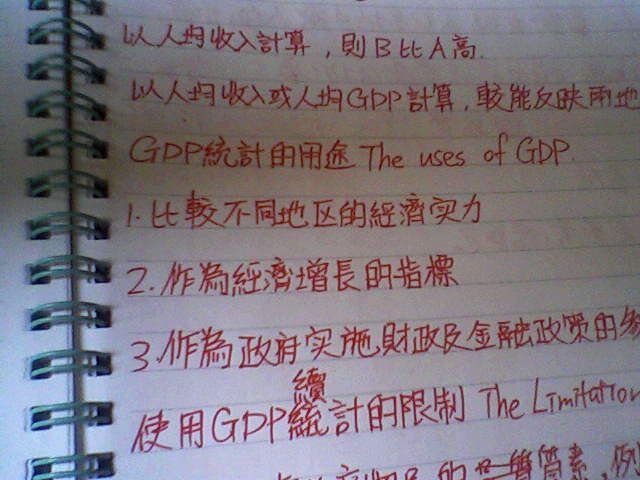 以人均收入計算，則B比A高.
以人均收入或人均GDP計算，較能反映兩地
GDP統計的用途 The uses of GDP.
1. 比較不同地区的經濟实力
2. 作為經濟增長的指標
3. 作為政府实施財政及金融政策的
續
使用GDP統計的限制 The Limitation
的 質素，例